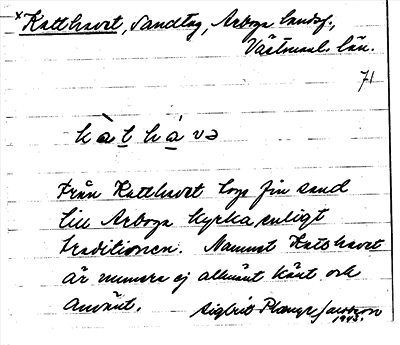 x Katthavet, Sandtag, Arboga landsf.,
Västmanl. län.
71
kàt hávə
Från Katthavet togs fin sand
till Arboga kyrka enligt
traditionen. Namnet Katthavet
är numera ej allmänt känt och
använt.
Sigbrit Plænge Jacobson
1943.